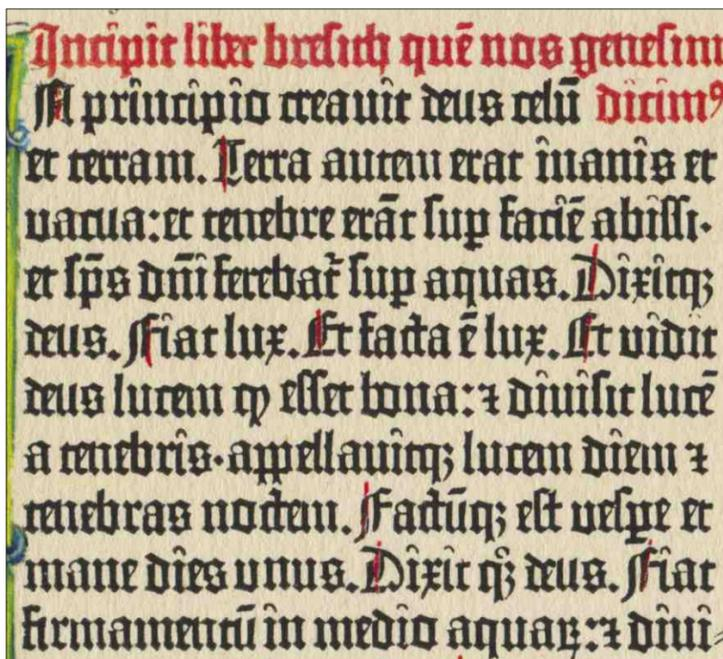 Incipit liber bresith quē nos genesim
In principio creauit deus celū dicim⁹
et terram. Terra autem erat inanis et
vacua: et tenebre erāt sup faciē abissi·
et sp̄s dn̄i ferebat᷑ sup aquas. Dixitqꝫ
deus. Fiat lux. Et facta ē lux. Et vidit
deus lucem ꝙ esset bona: ⁊ diuisit lucē
a tenebris· appellauitqꝫ lucem diem ⁊
tenebras noctem. Factūqꝫ est vespe et
mane dies vnus. Dixit q̊ꝫ deus. Fiat
firmamentū in medio aquaꝝ: ⁊ diui-